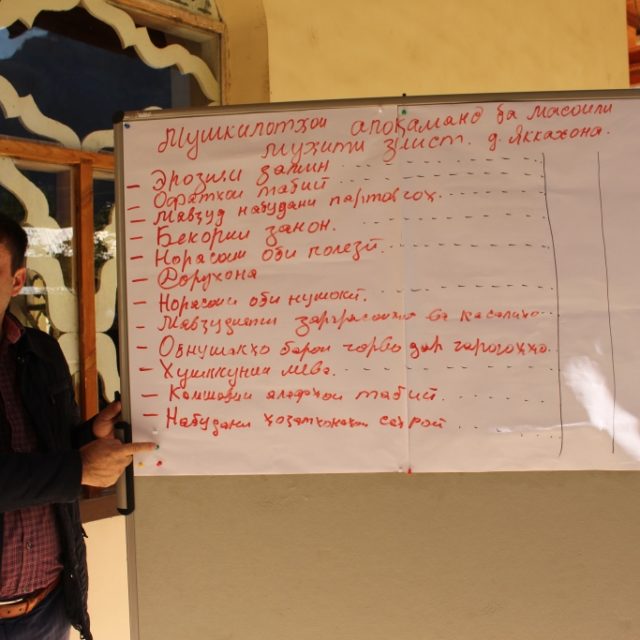 Мушкилотҳои алоқаманд ба масоили
муҳити зист. д. Яккахона.
- Эрозияи замин
- Офатҳои табий
- Мавҷуд набудани партовгоҳ.
- Бекории занон.
- Норасоии оби полезӣ.
- Дорухона
- Норасоии оби нушокӣ.
- Мавҷудияти зараррасонҳо ва касалиҳо.
- Обнушакҳо барои чорво дар чарогоҳҳо.
- Хушккунии мева.
- Камшавии алафҳои табий.
- Набудани ҳоҷатхонаҳои саҳроӣ